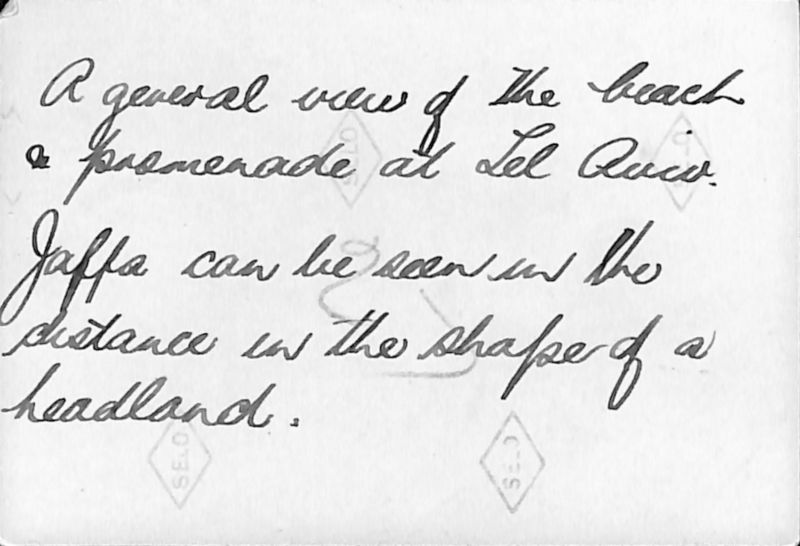 A general view of the beach
& promenade at Tel Aviv.
Jaffa can be seen in the
distance in the shape of a
headland.
SELO
SELO
SELO
SELO